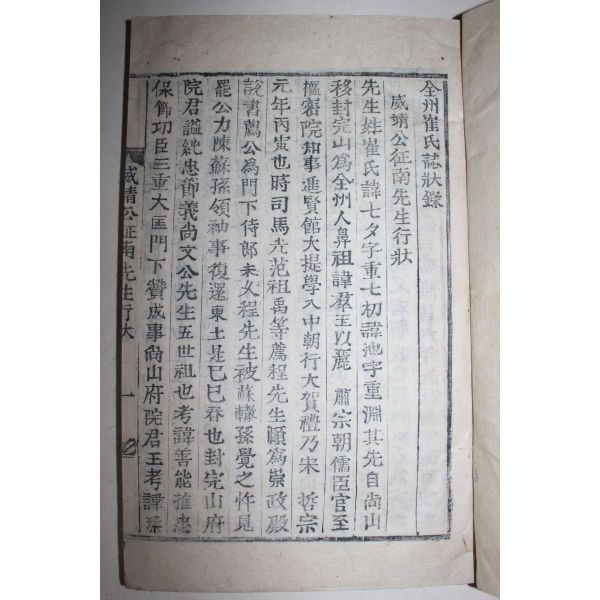 全州崔氏誌狀錄
威靖公征南先生行狀
先生姓崔氏諱七夕字重七初諱池字重淵其先自尚山
移封完山爲全州人鼻祖諱羣玉以麗 肅宗朝儒臣官至
樞密院知事進賢館大提學入中朝行大賀禮乃宋 哲宗
元年丙寅也時司馬光范祖禹等薦程先生頤爲崇政殿
說書薦公爲門下侍郎未久程先生被蘇轍孫覺之忤見
罷公力陳蘇孫領袖事復還東土是己巳春也封完山府
院君謚純忠節義尚文公先生五世祖也考諱善能推忠
保節功臣三重大匡門下贊成事尚山府院君王考諱
威靖公征南先生行狀 一